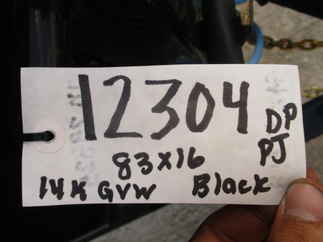 12304
DP
83x16 PJ
14K GVW Black